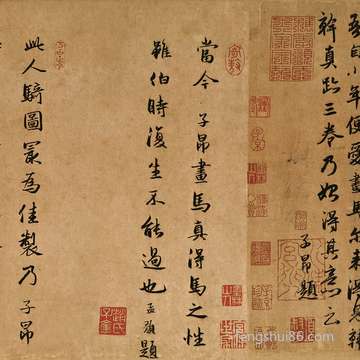 吾自小年便愛畫馬爾來得見韓
幹真跡三卷乃始得其意云
子昂題
當今子昂畫馬真得馬之性
雖伯時復生不能過也孟籲題
此人騎圖最為佳製乃子昂
fengshui86.com